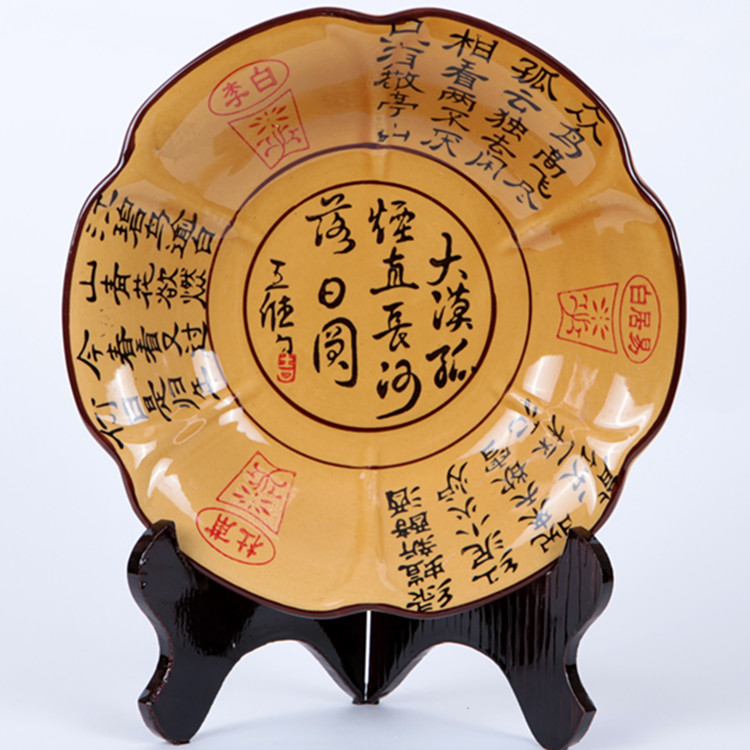 大漠孤
煙直長河
落日圓
王維句
李白
众鸟高飞尽
孤云独去闲
相看两不厌
只有敬亭山
白居易
绿螘新醅酒
红泥小火炉
晚来天欲雪
杜甫
江碧鸟逾白
山青花欲燃
今春看又过
何日是归年